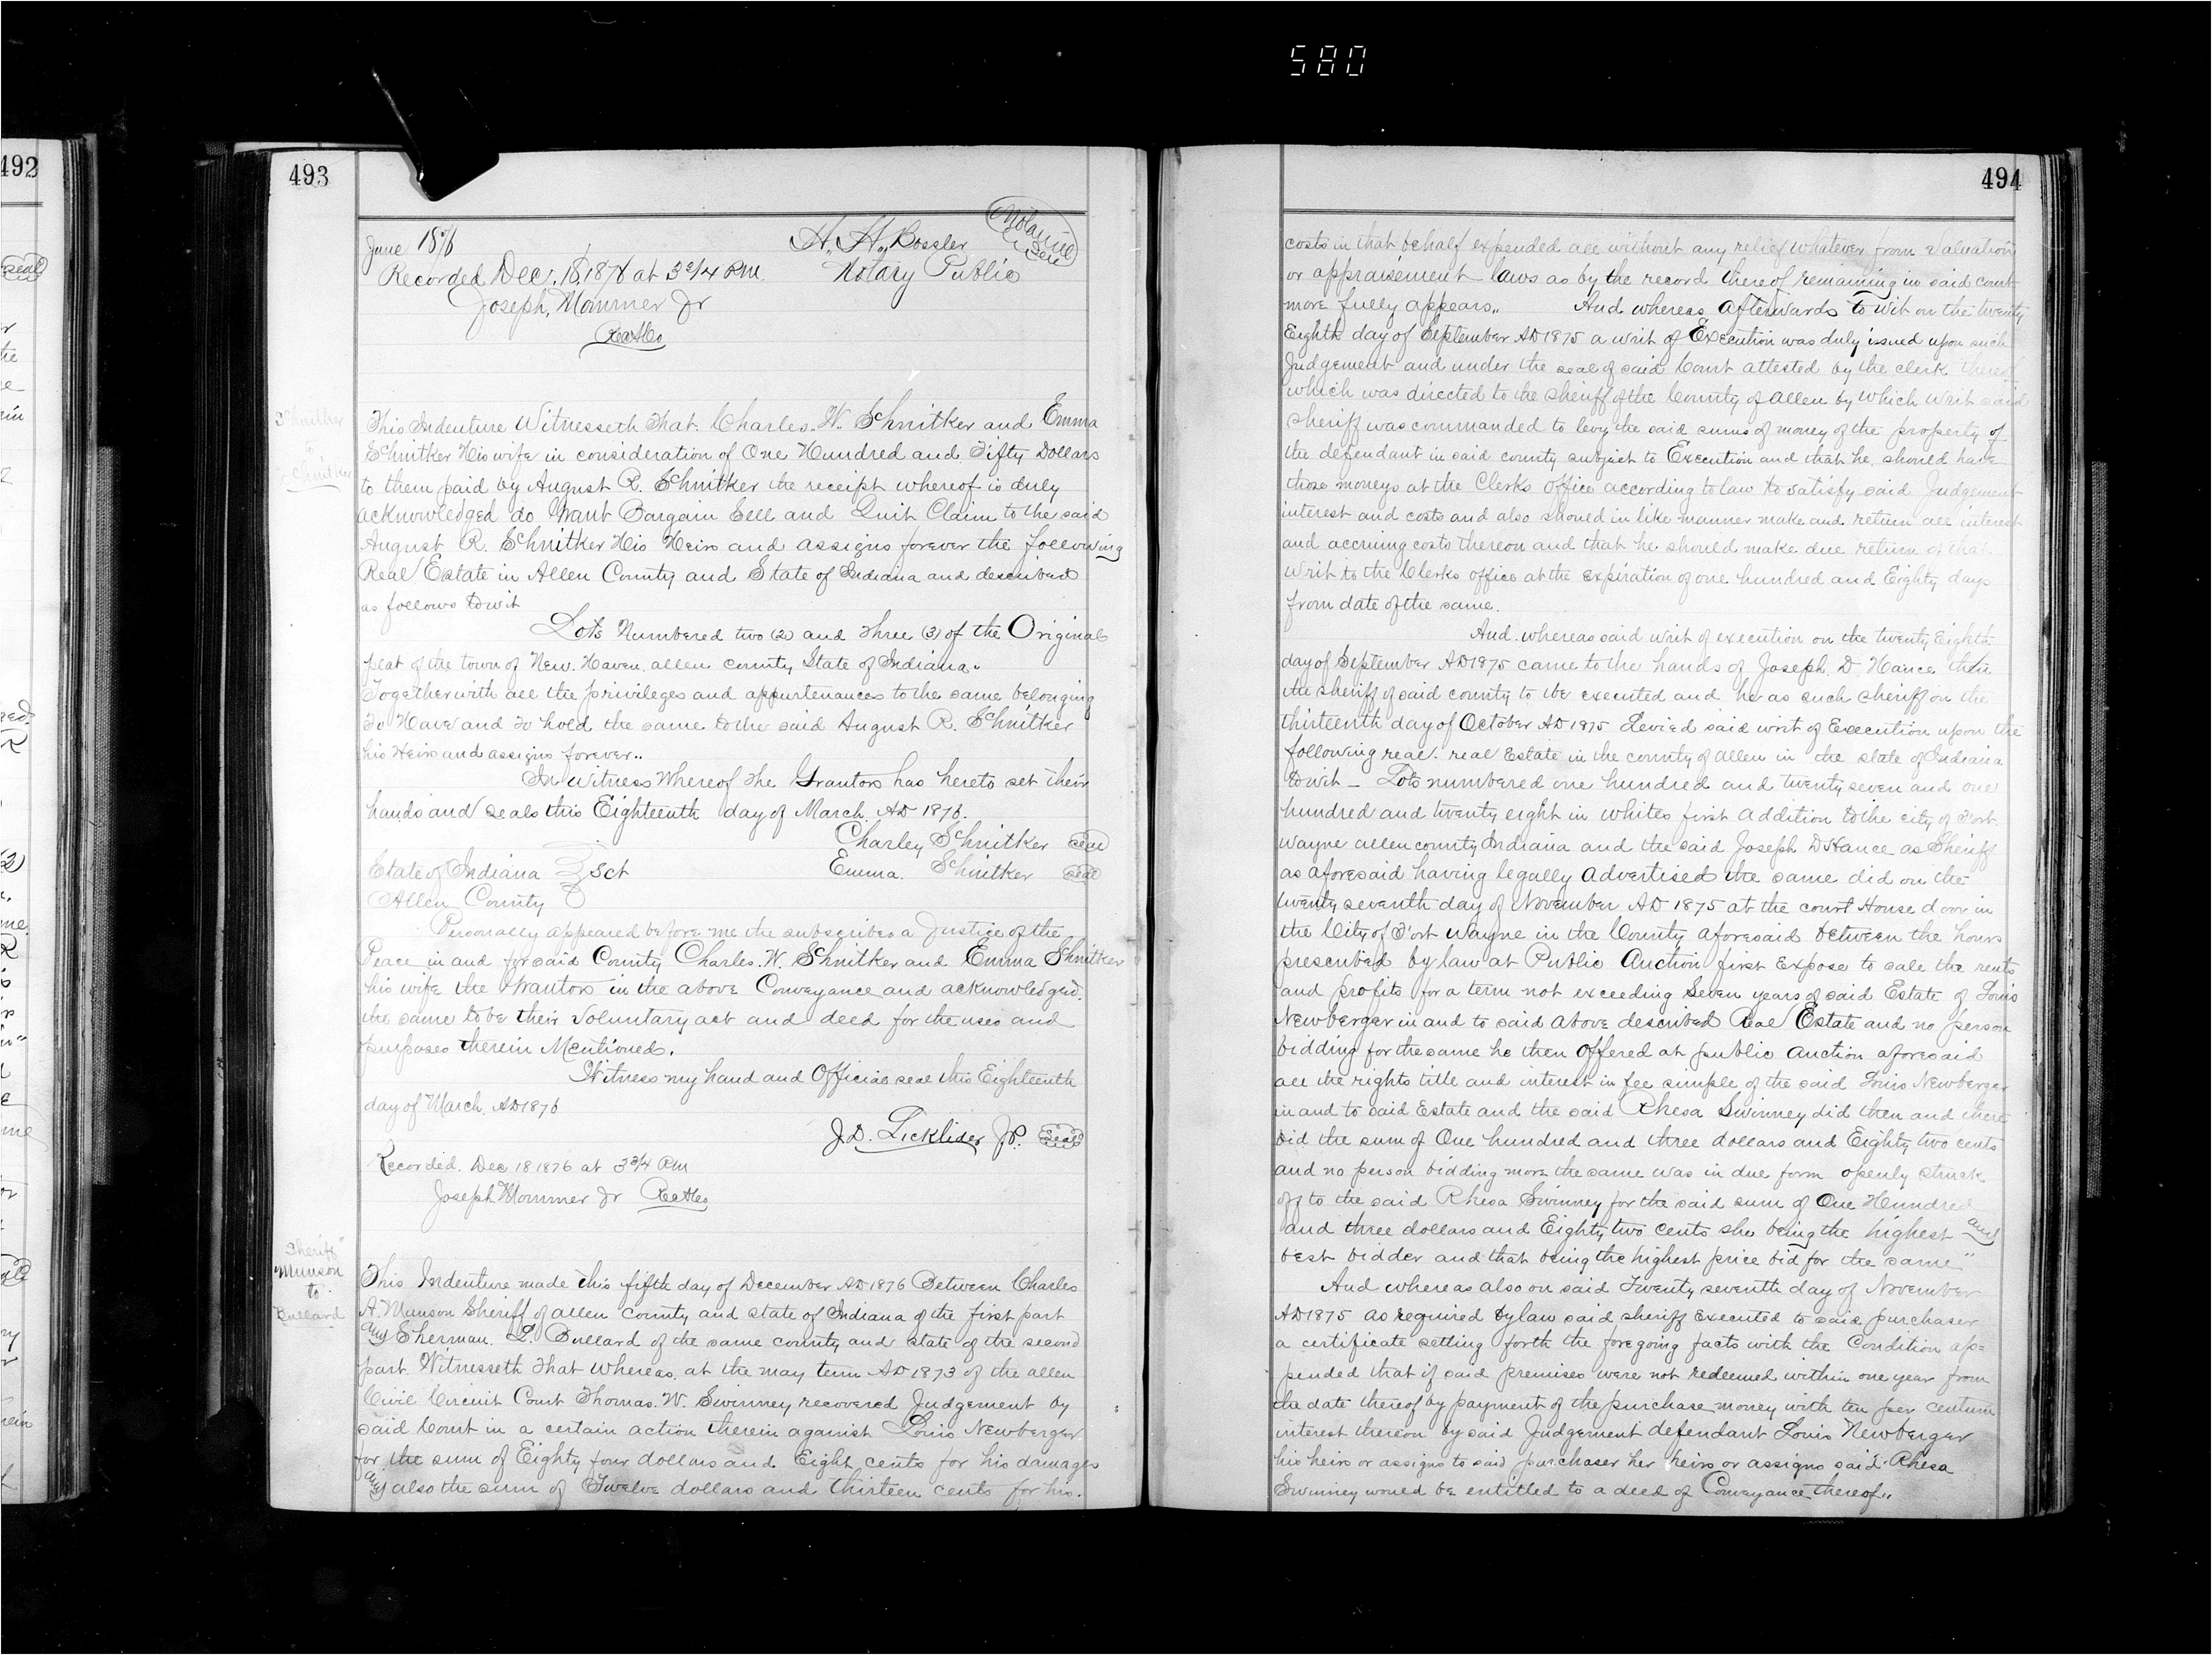 580
492
493
June 1876
H. H. Bossler
Notarial Seal
Recorded Dec. 18, 1876 at 3 3/4 P.M.
Notary Public
Joseph, Mommer Jr
Schnitker
to
Schnitker
This Indenture Witnesseth That. Charles. W. Schnitker and Emma
Schnitker His wife in consideration of One Hundred and Fifty Dollars
to them paid by August R. Schnitker the receipt whereof is duly
acknowledged do Grant Bargain Sell and Quit Claim to the said
August R. Schnitker His Heirs and assigns forever the following
Real Estate in Allen County and State of Indiana and described
as follows towit
Lots Numbered two (2) and three (3) of the Original
plat of the town of New. Haven, allen county State of Indiana.
Together with all the privileges and appurtenances to the same belonging
To Have and to hold the same to the said August R. Schnitker
his Heirs and assigns forever..
In Witness Whereof the Grantors has hereto set their
hands and seals this Eighteenth day of March. AD 1876.
Charley Schnitker seal
State of Indiana } Sct
Emma. Schnitker seal
Allen County
Personally appeared before me the subscriber a Justice of the
Peace in and for said County Charles. W. Schnitker and Emma Shnitker
his wife the Grantors in the above Conveyance and acknowledged.
the same to be their Voluntary act and deed for the uses and
purposes therein Mentioned.
Witness my hand and Official seal this Eighteenth
day of March. AD 1876
J.D. Licklider J.P. Seal
Recorded. Dec 18 1876 at 3 3/4 P.M
Joseph Mommer Jr
Sheriff
Munson
to
Bullard
This Indenture made this fifth day of December AD 1876 Between Charles
A. Munson Sheriff of allen county and state of Indiana of the first part
and Sherman. L. Bullard of the same county and state of the second
part. Witnesseth That Whereas. at the may term AD 1873 of the allen
Civil Circuit Court Thomas. W. Swinney recovered Judgement by
said Court in a certain action therein against Louis Newberger
for the sum of Eighty four dollars and Eight cents for his damages
and also the sum of Twelve dollars and thirteen cents for his.
494
costs in that behalf expended all without any relief whatever from valuation
or appraisement laws as by the record thereof remaining in said court
more fully appears.. And whereas, afterwards to wit on the twenty
Eighth day of September AD 1875 a writ of Execution was duly issued upon such
Judgement and under the seal of said Court attested by the clerk
which was directed to the sheriff of the County of allen by which writ said
sheriff was commanded to levy the said sums of money of the property of
the defendant in said county subject to Execution and that he should have
those moneys at the Clerks office according to law to satisfy said Judgement
interest and costs and also should in like manner make and return all interest
and accruing costs thereon and that he should make due return of that
writ to the Clerks office at the expiration of one hundred and Eighty days
from date of the same.
And whereas said writ of execution on the twenty Eighth
day of September AD 1875 came to the hands of Joseph D. Hance then
the sheriff of said county to be executed and he as such sheriff on the
thirteenth day of October AD 1875 Levied said writ of Execution upon the
following real. real Estate in the county of allen in the state of Indiana
towit - Lots numbered one hundred and twenty seven and one
hundred and twenty eight in whites first addition to the city of Fort
wayne allen county Indiana and the said Joseph D Hance as Sheriff
as aforesaid having legally advertised the same did on the
twenty seventh day of November AD 1875 at the court House door in
the City of Fort wayne in the County aforesaid between the hours
prescribed by law at Public Auction first expose to sale the rents
and profits for a term not exceeding Seven years of said Estate of Louis
Newberger in and to said above described Real Estate and no person
bidding for the same he then offered at public auction aforesaid
all the rights title and interest in fee simple of the said Louis Newberger
in and to said Estate and the said Rhesa Swinney did then and there
bid the sum of One hundred and three dollars and Eighty two cents
and no person bidding more the same was in due form openly struck
off to the said Rhesa Swinney for the said sum of One Hundred
and three dollars and Eighty two cents she being the highest and
best bidder and that being the highest price bid for the same"
And whereas also on said Twenty seventh day of November
AD 1875 as required by law said sheriff executed to said purchaser
a certificate setting forth the foregoing facts with the Condition ap=
pended that if said premises were not redeemed within one year from
the date thereof by payment of the purchase money with ten per centum
interest thereon by said Judgement defendant Louis Newberger
his heirs or assigns to said purchaser her heirs or assigns said Rhesa
Swinney would be entitled to a deed of Conveyance thereof..